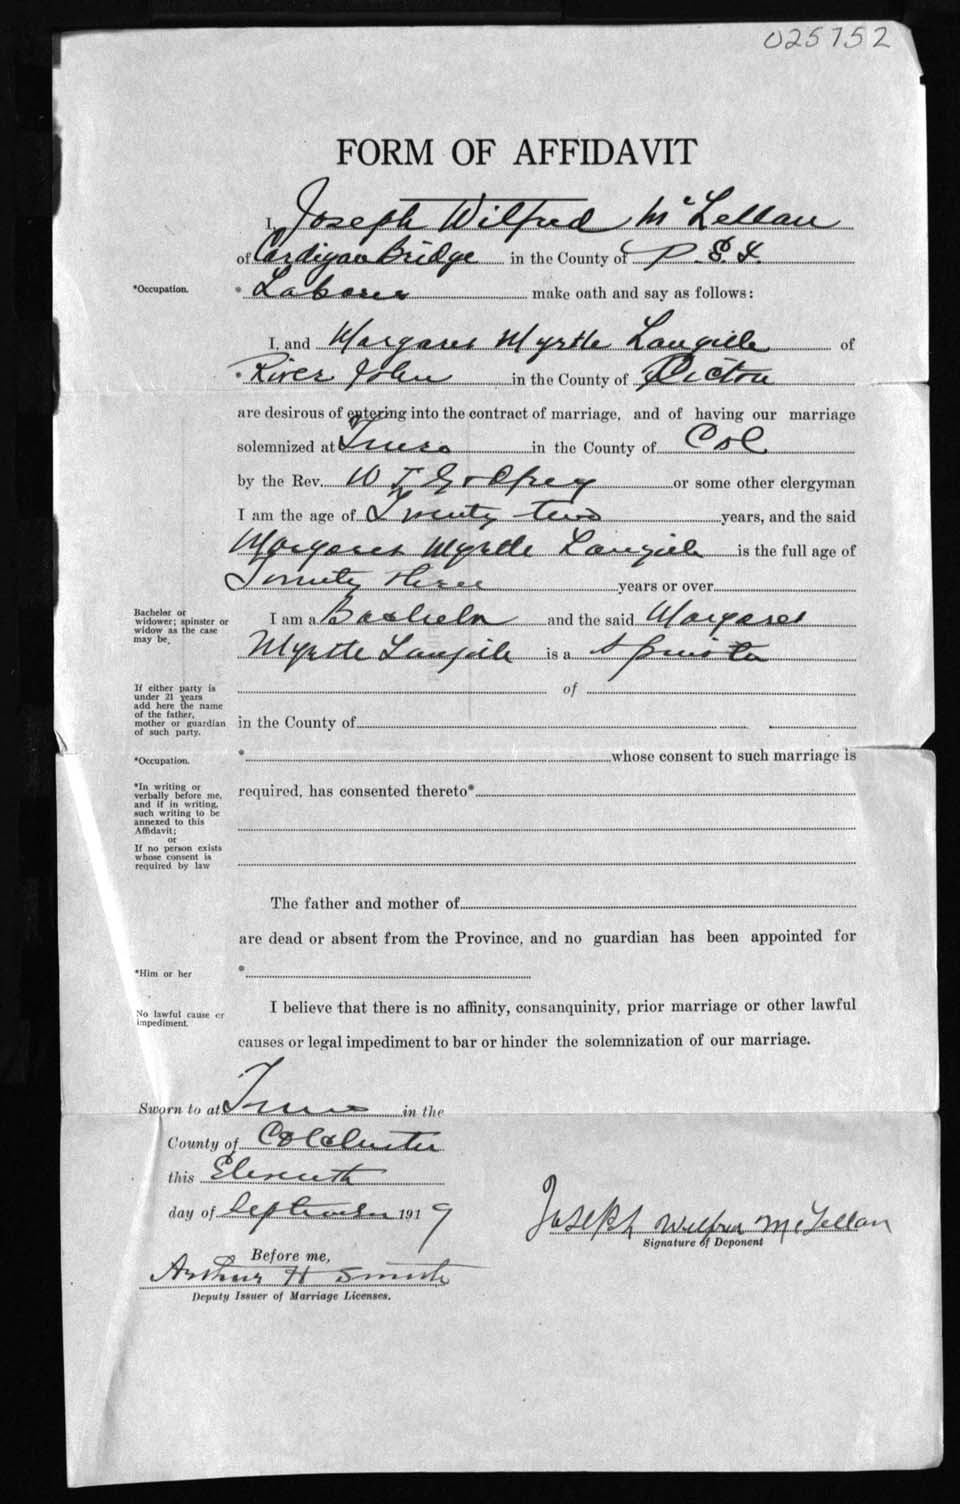 025752
FORM OF AFFIDAVIT
I, Joseph Wilfred McLellan
of Cardigan Bridge in the County of P.E.I.
*Occupation. * Laborer make oath and say as follows:
I, and Margaret Myrtle Langille of
* River John in the County of Pictou
are desirous of entering into the contract of marriage, and of having our marriage
solemnized at Truro in the County of Col
by the Rev. W T Godfrey or some other clergyman
I am the age of Twenty two years, and the said
Margaret Myrtle Langille is the full age of
Twenty three years or over
Bachelor or
widower; spinster or
widow as the case
may be.
I am a Bachelor and the said Margaret
Myrtle Langille is a Spinster
If either party is
under 21 years
add here the name
of the father,
mother or guardian
of such party.
of
in the County of
*Occupation.
* whose consent to such marriage is
*In writing or
verbally before me,
and if in writing,
such writing to be
annexed to this
Affidavit;
or
If no person exists
whose consent is
required by law
required, has consented thereto*
The father and mother of
are dead or absent from the Province, and no guardian has been appointed for
*Him or her *
No lawful cause or
impediment.
I believe that there is no affinity, consanquinity, prior marriage or other lawful
causes or legal impediment to bar or hinder the solemnization of our marriage.
Sworn to at Truro in the
County of Colchester
this Eleventh
day of September 1919
Before me,
Arthur H Smith
Deputy Issuer of Marriage Licenses.
Joseph Wilfred McLellan
Signature of Deponent